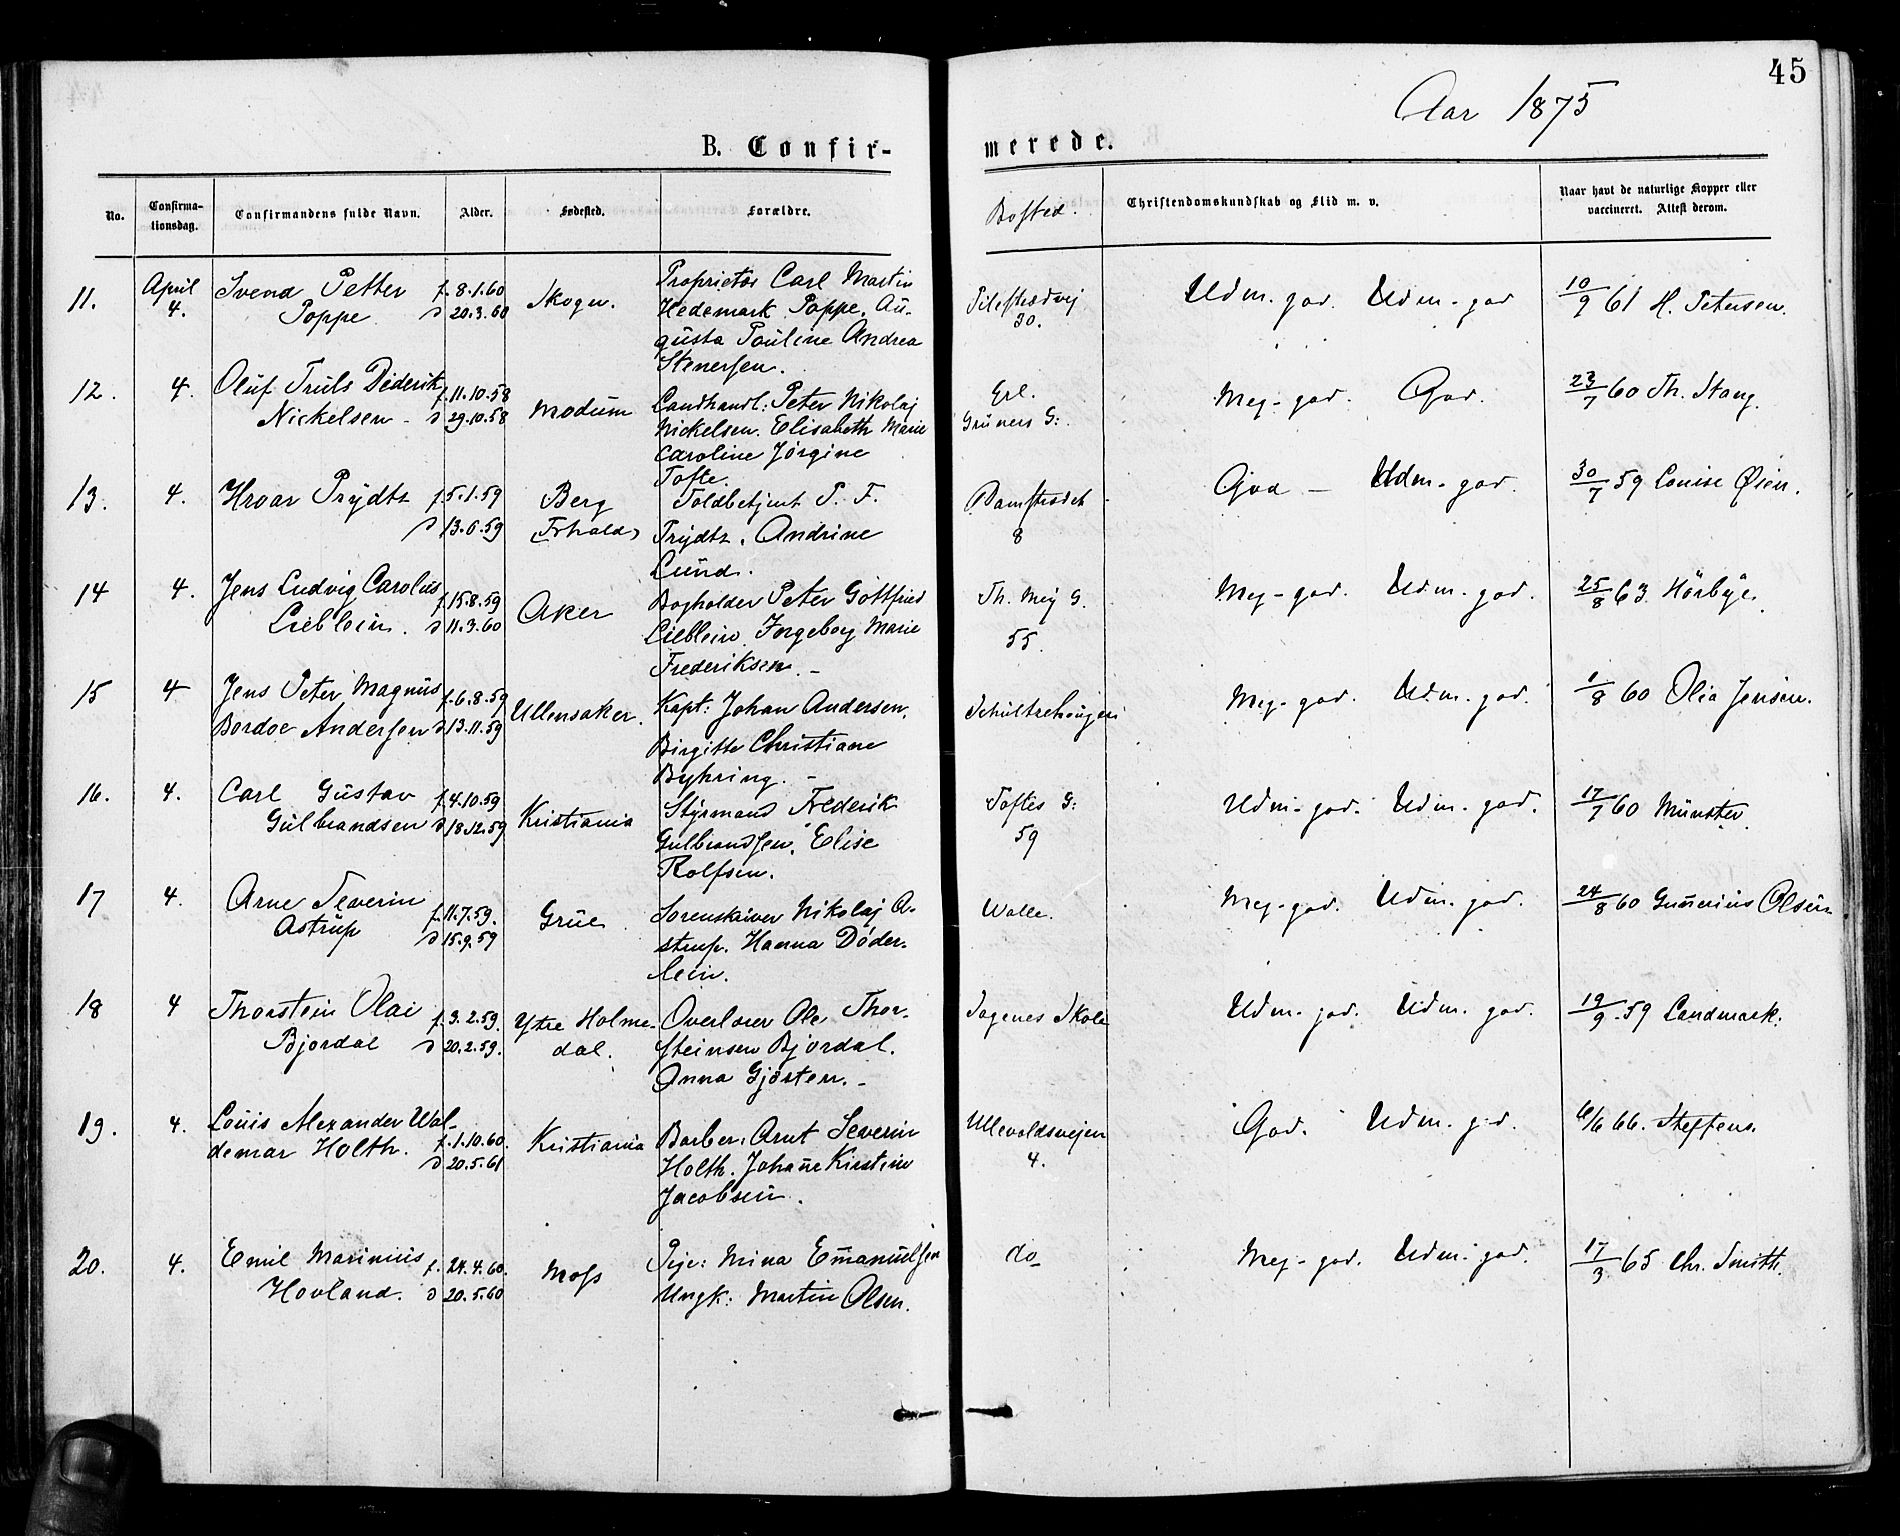 45
Aar 1875
B. Confir-
merede.
No.
Confirma-
tionsdag.
Confirmandens fulde Navn.
Alder.
Fødested.
Forældre.
Bosted.
Christendomskundskab og Flid m. v.
Naar havt de naturlige Kopper eller
vaccineret. Attest derom.
11. April 4. Svend Petter f. 8.1.60 Skogn. Proprietær Carl Martin Pilestrædvej Udm. god. Udm. god 10/9 61 H. Petersen.
Poppe d 20.3.60 Hedemark Poppe. Au- 30.
gusta Pauline Andrea
Stenersen.
12. 4. Oluf Truls Diderik f. 11.10.58 Modum Landhandl: Peter Nikolaj Grl. Meg-god. God. 23/7 60 Th. Stang.
Nickelsen - d 29.10.58 Nickelsen. Elisabeth Marie Grüners G:
Caroline Jørgine
Tofte.
13. 4. Hroar Prydtz f 5.1.59 Berg Toldbetjent P. F. Damstrædet God - Udm. god. 30/7 59 Louise Øien.
d 13.6.59 Frhald Prydtz. Andrine 8
Lund.
14 4. Jens Ludvig Carolus f. 15.8.59 Aker Bogholder Peter Gottfried Th. Mey G. Meg-god. Udm. god. 25/8 63 Hörbye
Lieblein. d 11.3.60 Lieblein Ingeborg Marie 55.
Frederiksen. -
15 4 Jens Peter Magnus f. 6.8.59 Ullensaker. Kapt: Johan Andersen. Schultzehaugen Meg-god. Udm. god. 1/8 60 Olia Jensen.
Bordoe Andersen d 13.11.59 Birgitte Christiane
Byhring. -
16. 4. Carl Gustav f. 4.10.59 Kristiania Styrmand Frederik Toftes G: Udm-god. Udm. god. 17/7 60 Münster.
Gulbrandsen d 18.12.59 Gulbrandsen. Elise 59
Rolfsen.
17 4. Arne Severin f. 11.7.59. Grue Sorenskriver Nikolaj A- Volle. Meg-god. Udm. god. 24/8 60 Gunerius Olsen
Astrup d 15.9.59 strup. Hanna Døder-
lein.
18 4 Thorstein Olai f. 3.2.59. Ytre Holme- Overlærer Ole Thor- Sagenes Skole Udm. god. Udm. god. 19/9 59 Landmark.
Bjordal d 20.2.59. dal. steinsen Bjordal.
Anna Gjøsten. -
19. 4. Louis Alexander Wal- f. 1.10.60. Kristiania Barber: Arnt Severin Ullevoldsvejen God. Udm. god. 6/6 66. Steffens.
demar Holth. d 20.5.61 Holth. Johane Kirstine 4.
Jacobsen.
20. 4. Emil Marinius f. 24.4.60. Moss Pige: Mina Emanuelsen do Meg-god. Udm. god. 17/3 65 Chr. Smith.
Hovland. d 20.5.60 Ungk: Martin Olsen.